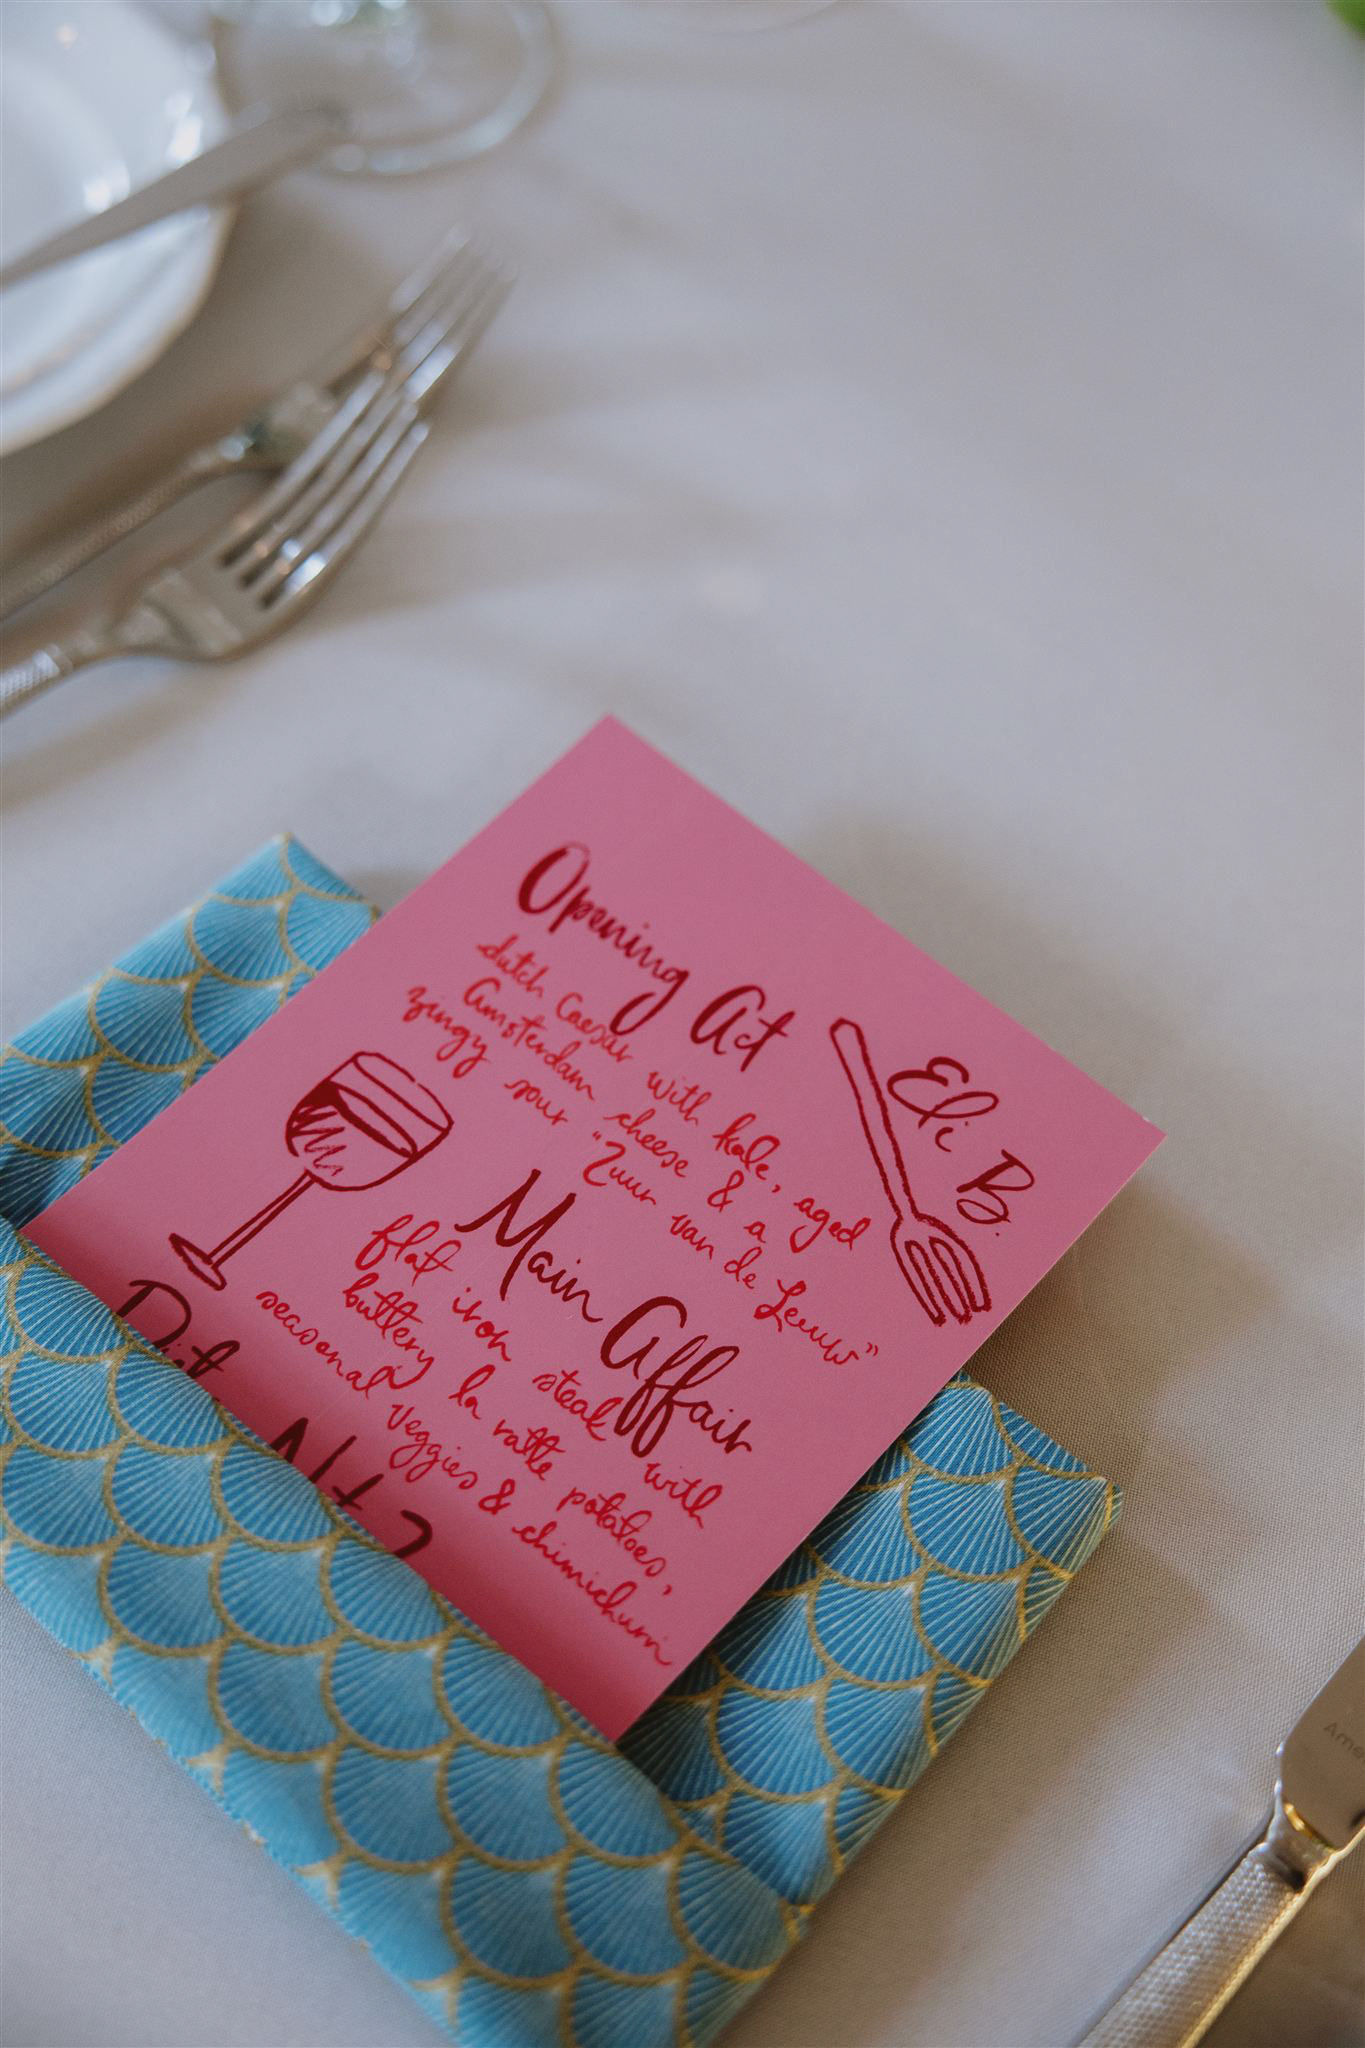 Opening Act
dutch Caesar with kale, aged
Amsterdam cheese & a
zingy sour "Zuur van de Leeuw"
Eli B.
Main Affair
flat iron steak with
buttery la ratte potatoes,
seasonal veggies & chimichurri
Ame